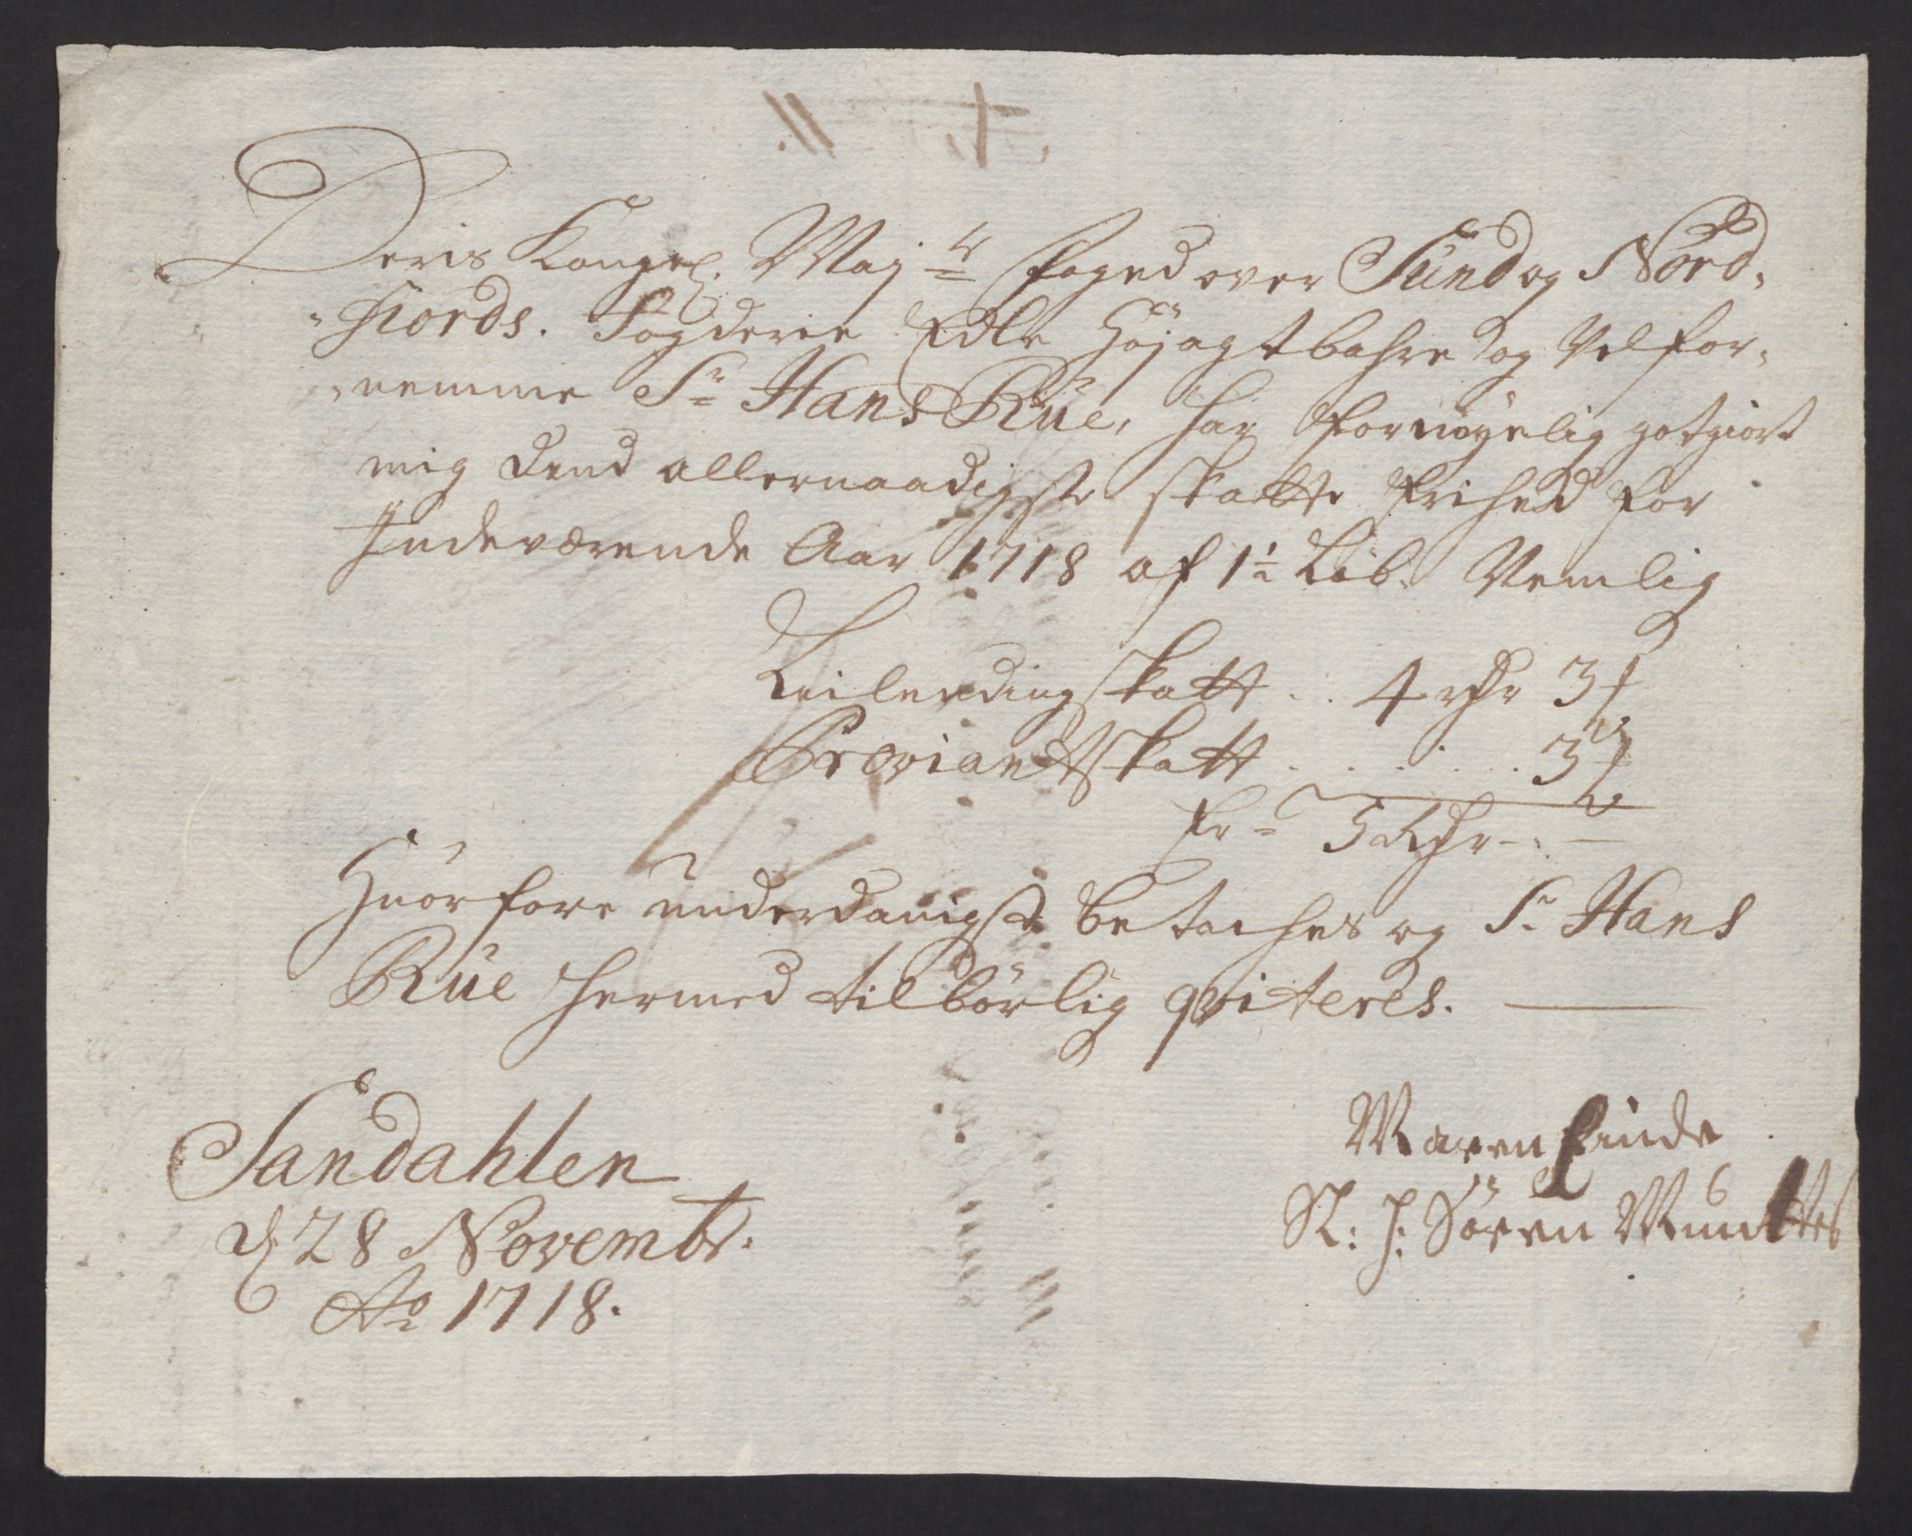 Deris Kongel. Maj:ts foged over Sund og Nord-
fiords. Fogderie Edle Høyagtbahre og Velfor-
nemme Sr Hans Rüe, har fornøyelig gotgiort
mig dend allernaadigste skatte frihed for
Indeværende Aar 1718 af 1½ Løb. Nemlig
Leilendingskatt .. 4 rdr 3
Proviandtskatt . . . . . . 3
5 Rdr - . -
Huorfore underdanigst betaches og Sr Hans
Rüe hermed tilbörlig qviteres.
Sandahlen
d 28 Novembr.
Ao 1718.
Maren Finde
Sl: H: Sören Munthes